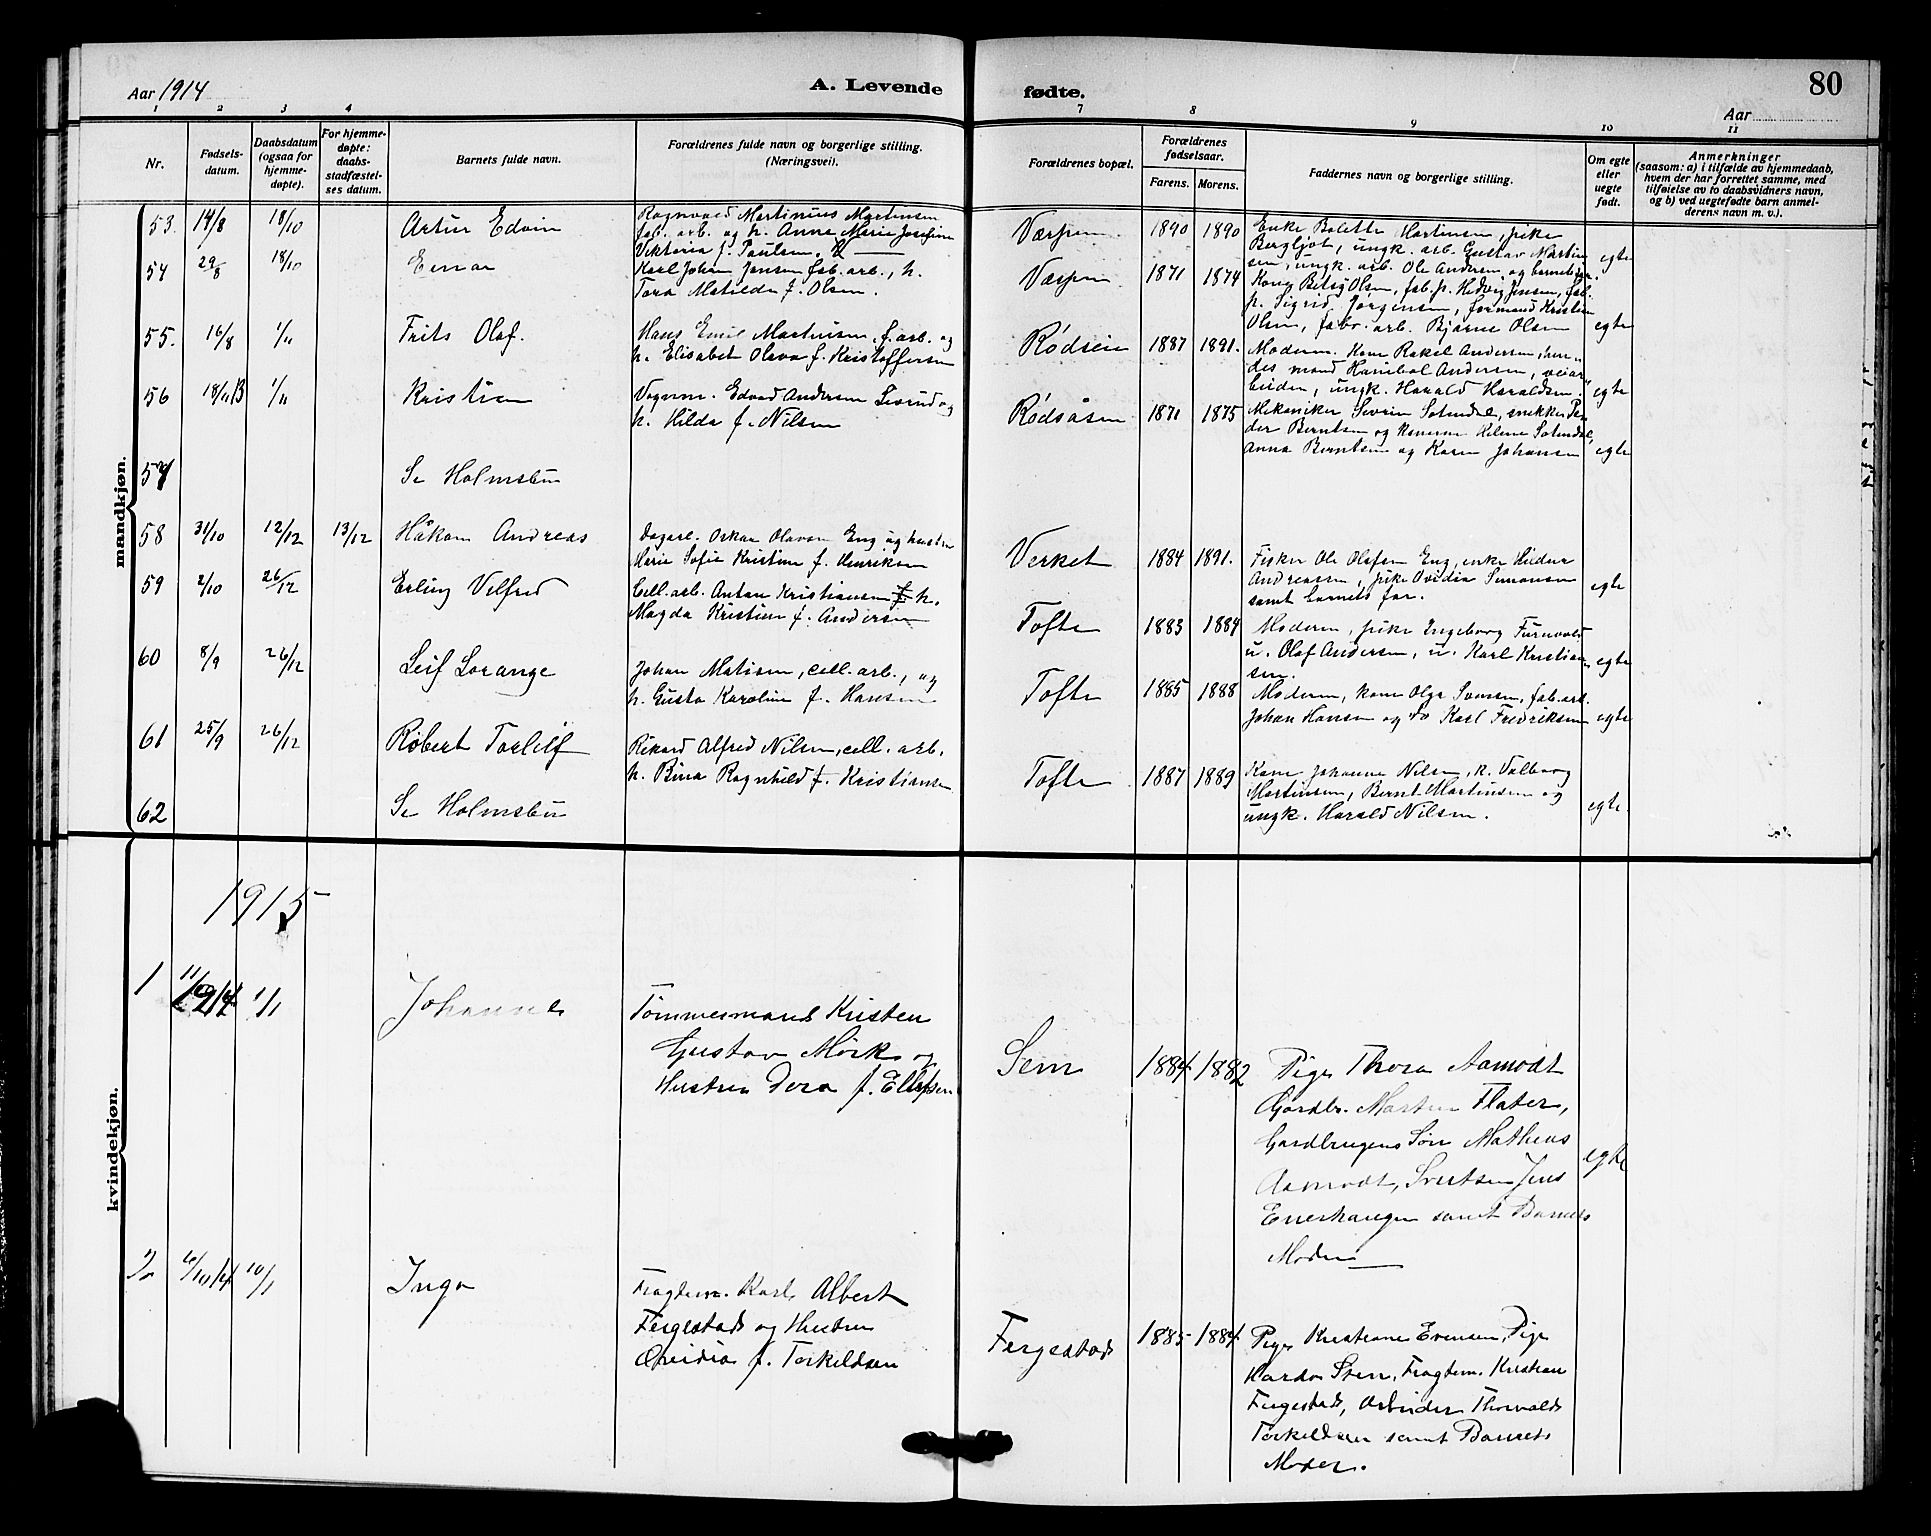 Aar 1914
A. Levende
fødte.
80
Aar
1 2 3 4 7 8 9 10 11
Nr.
Fødsels-
datum.
Daabsdatum
(ogsaa for
hjemme-
døpte).
For hjemme-
døpte:
daabs-
stadfæstel-
ses datum.
Barnets fulde navn.
Forældrenes fulde navn og borgerlige stilling.
(Næringsvei).
Forældrenes bopæl.
Forældrenes
fødselsaar.
Farens. Morens.
Faddernes navn og borgerlige stilling.
Om egte
eller
uegte
født.
Anmerkninger
(saasom: a) i tilfælde av hjemmedaab,
hvem der har forrettet samme, med
tilføielse av to daabsvidners navn,
og b) ved uegtefødte barn anmel-
derens navn m. v.).
mandkjøn.
53. 14/8 18/10 Artur Edvin
Ragnvald Martinius Martinsen
fab. arb. og h. Anna Marie Josefine
Viktoria f. Paulsen.
Værpen 1890 1890
Enke Bolette Martinsen, pike
Bergljot, ungk. arb. Gustav Martin
sen, ungk. arb. Ole Andersen og barnets far.
egte
54 29/8 18/10 Einar
Karl Johan Jensen fab. arb., h.
Tora Matilde f. Olsen.
Værpen 1871 1874
Kone Betsy Olsen, fab. p. Hedvig Jensen, fab.
p. Sigrid Jørgensen, formand Kristian
Olsen, fabr. arb. Bjarne Olsen
egte
55. 16/8 1/11 Frits Olaf.
Hans Emil Martinsen, f. arb. og
h. Elisabet Olava f. Kristoffersen
Rødseie 1887 1891.
Moderen. Kone Rakel Andersen, hen-
des mand Hanibal Andersen, veiar-
beider, ungk. Harald Haraldsen.
egte
56 18/11 13 1/11 Kristian
Vognm. Edvard Andersen og
h. Hilda f. Nilsen
Rødsåsen 1871 1875
Mekaniker Severin Solendal, snekker Pe-
der Berntsen og konerne Helene Solendal,
Anna Berntsen og Karen Johansen
egte
57 Se Holmsbu
58 31/10 12/12 13/12 Håkon Andreas
Dagarb. Oskar Olavsen Eng og hustru
Marie Sofie Kristine f. Henriksen
Verket 1884 1891.
Fisker Ole Olafsen Eng, enke Hedvig
Andreassen, pike Ovidia Simonsen
samt barnets far.
egte
59 2/10 26/12 Erling Vilfred
Cell. arb. Anton Kristiansen f h.
Magda Kristine f. Andersen
Tofte 1883 1884
Moderen, pike Ingeborg Furuvold
u. Olaf Andersen, u. Karl Kristian-
sen.
egte
60 8/9 26/12 Leif Lorange
Johan Matisen, cell. arb., og
h. Gusta Karoline f. Hansen
Tofte 1885 1888
Moderen, kone Olga Svensen, fab. arb.
Johan Hansen og do Karl Fredriksen
egte
61 25/9 26/12 Robert Torleif
Rikard Alfred Nilsen, cell. arb.
h. Bina Ragnhild f. Kristiansen
Tofte 1887 1889
Kone Johanne Nilsen, k. Valborg
Martinsen, Bernt Martinsen og
ungk. Harald Nilsen.
egte.
62 Se Holmsbu
kvindekjøn.
1915
1 1914 1/1 Johanne
Tømmermand Kristen
Gustav Mørk og
Hustru Dora f. Ellefsen
Sem 1884 1882
Pige Thora Aamodt
Gardbr. Morten Flater,
Gardbrugers Søn Matheus
Aamodt, Jens
Enerhaugen samt Barnets
Moder
egte
2 6/10 14 10/1 Inga
Fragtem. Karl Albert
Fergestad og Hustru
Ovidia f. Torkildsen
Fergestad 1885 1884
Pige Kristiane Evensen, Pige
Sten, Fragtem. Kristian
Fergestad, Arbeider Thorvald
Torkildsen samt Barnets
Moder.